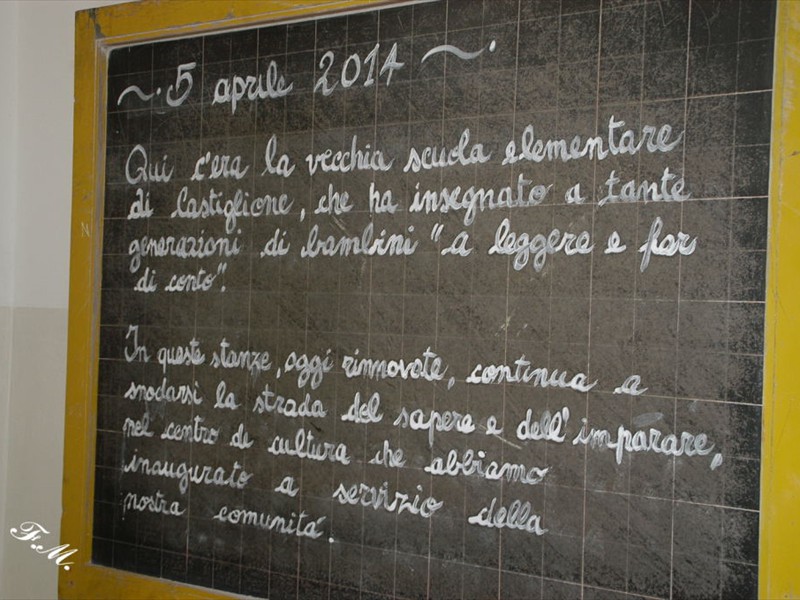 ~. 5 aprile 2014 ~.
Qui c'era la vecchia scuola elementare
di Castiglione, che ha insegnato a tante
generazioni di bambini "a leggere e far
di conto".
In queste stanze, oggi rinnovate, continua a
snodarsi la strada del sapere e dell'imparare,
nel centro di cultura che abbiamo
inaugurato a servizio della
nostra comunità.
F.M.